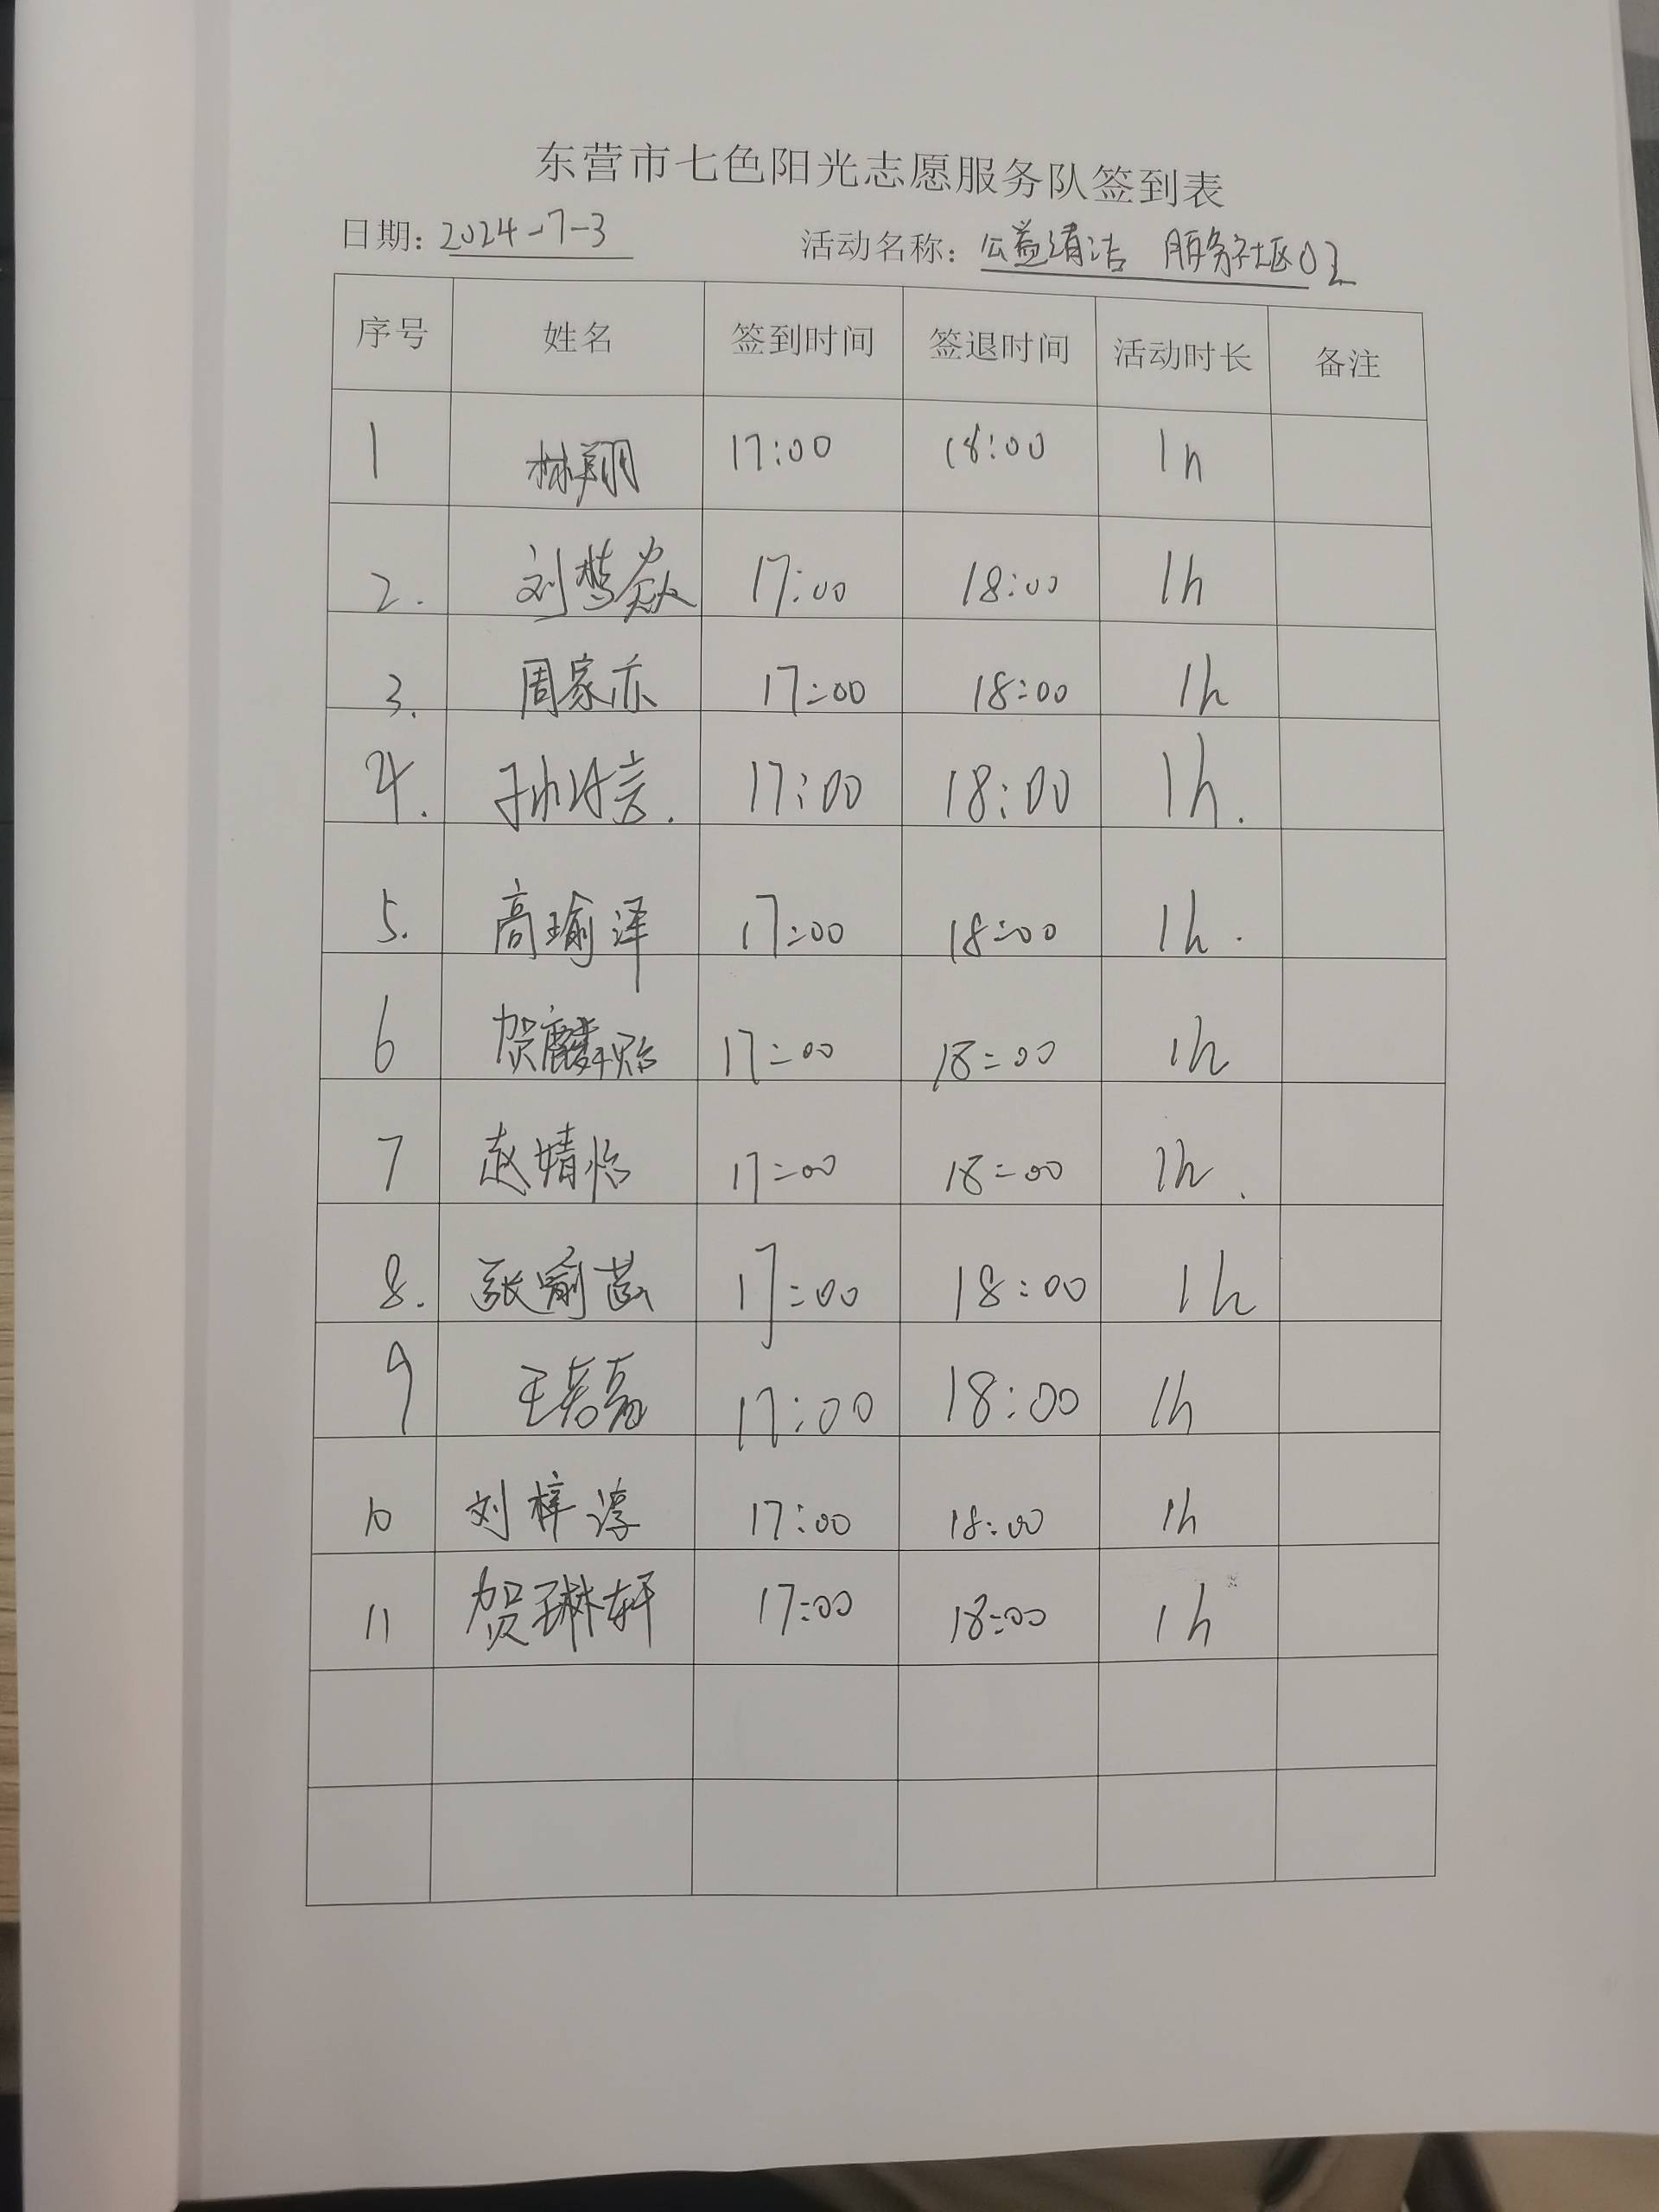 东营市七色阳光志愿服务队签到表
日期: 2024-7-3 活动名称: 公益清洁 服务社区02
序号 姓名 签到时间 签退时间 活动时长 备注
1 林翔 17:00 18:00 1h
2. 刘楚焱 17:00 18:00 1h
3. 周家亦 17:00 18:00 1h
4. 17:00 18:00 1h.
5. 高瑜泽 17:00 18:00 1h.
6 贺麟贻 17:00 18:00 1h
7 赵婧怡 17:00 18:00 1h.
8. 17:00 18:00 1h
9 17:00 18:00 1h
10 刘梓谆 17:00 18:00 1h
11 贺琳轩 17:00 18:00 1h